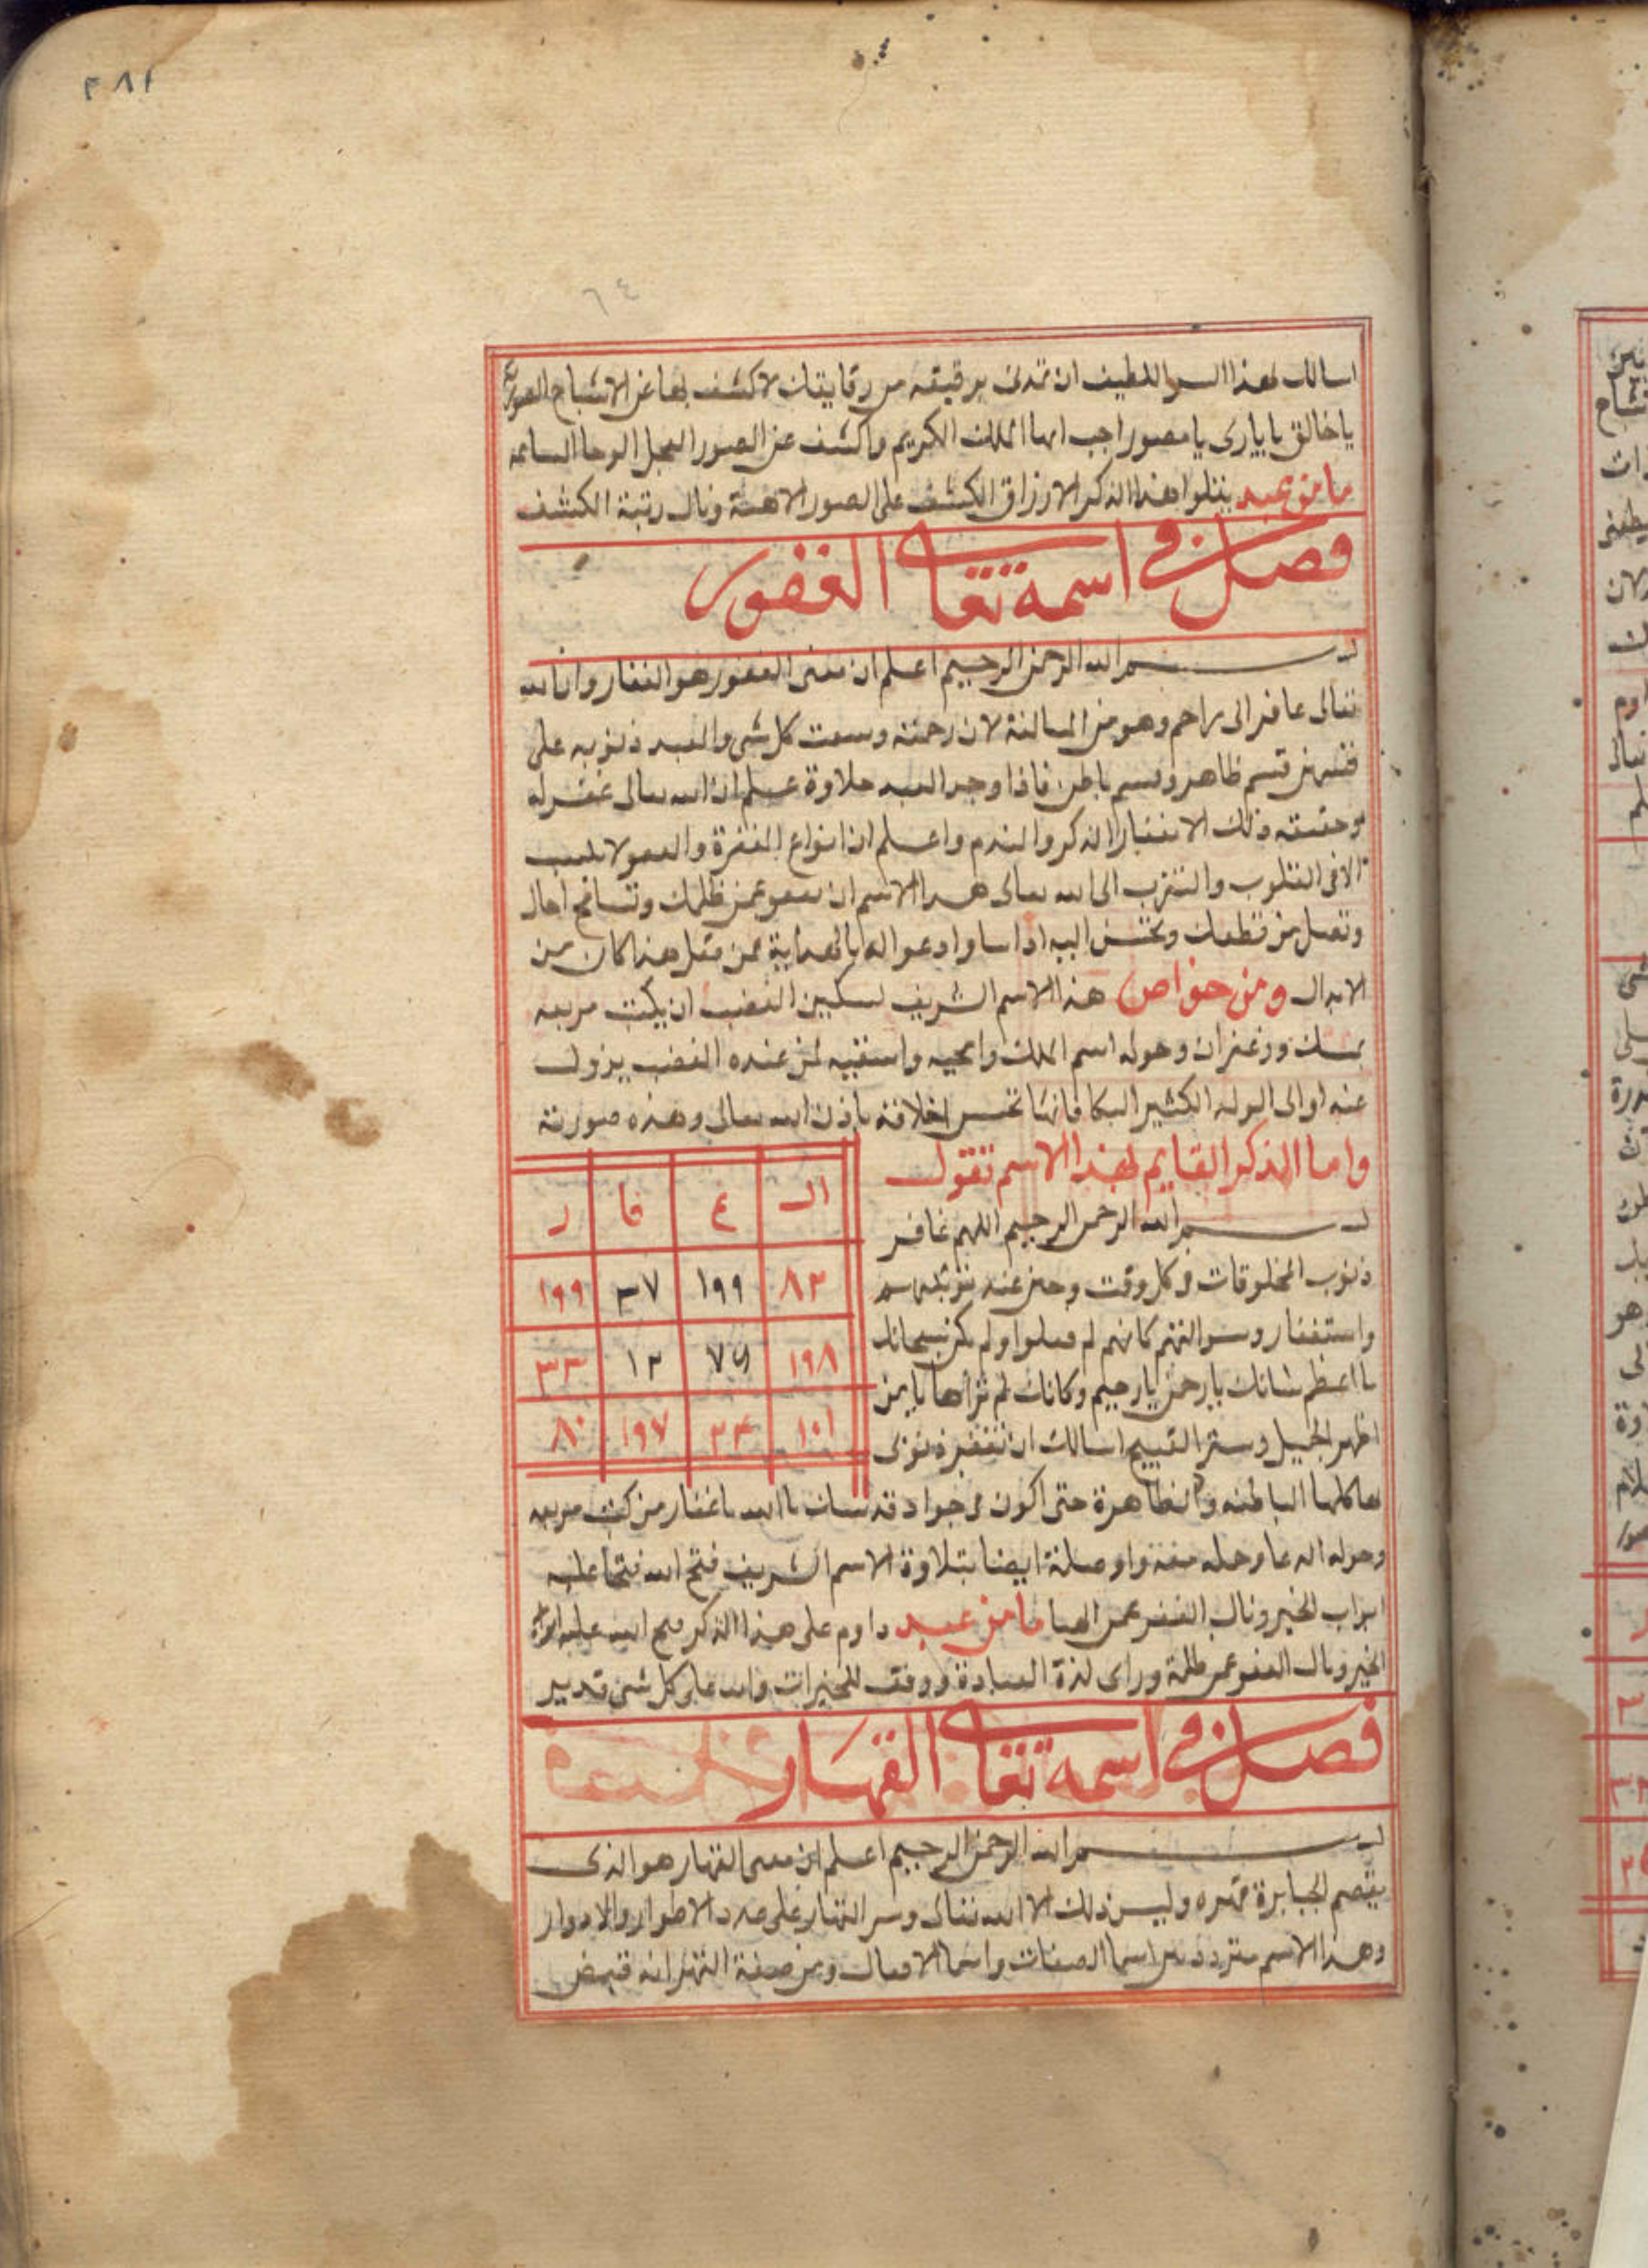 ٣٨١
٦٤
اسالك بهذا السر اللطيف ان تمدنى برقيقه من رقايقك لاكشف بها عن الاشباح
يا خالق يا بارى يا مصور اجب ايها الملك الكريم واكشف عن الصور العجل الوحا الساعه
ما من عبد يتلوا هذا الذكر الا رزاق الكشف على الصور ونال رتبة الكشف
فصل فى اسمه تعالى الغفور
بسم الله الرحمن الرحيم اعلم ان معنى الغفور هو الغفار وان الله
تعالى غافر اى راحم وهو من المبالغة لان رحمته وسعت كل شى والعبد ذنوبه على
قسمين قسم ظاهر وقسم باطن فاذا وجد العبد حلاوة علم ان الله تعالى غفر له
وحقيقته ذلك الاستغفار الذكر والندم واعلم ان انواع المغفرة والعفو لا
الا فى القلوب والتقرب الى الله تعالى بهذا الاسم ان تعفو عمن ظلمك وتسامح
وتصل من قطعك وتحسن اليه اذا اسا وادعوا له بالهداية فمن فعل هذا كان من
الابدال ومن خواص هذا الاسم الشريف تسكين الغضب ان يكتب مربعه
بمسك وزعفران وحوله اسم الملك وامحيه واسقيه لمن عنده الغضب يزول
عنه او الى الولد الكثير البكا فانها تحسن اخلاقه باذن الله تعالى وهذه صورته
واما الذكر القايم بهذا الاسم تقول
بسم الله الرحمن الرحيم اللهم غافر
ذنوب المخلوقات فى كل وقت وحين عند توبتهم
واستغفار وسوالتهم كانهم لم فعلوا ولم يكن سبحانك
ما اعظم شانك يا رحمن يا رحيم وكانك لم تراها يا من
اظهر الجميل وستر القبيح اسالك ان تغفر ذنوبى
ال ع فا ر
٨٢ ١٩٩ ٣٧ ١٩٩
١٩٨ ٧٩ ١٢ ٣٣
١٠١ ٣٤ ١٩٧ ٨٠
كلها الباطنه والظاهرة حتى اكون فى جوا يا الله يا غفار من كتب مربعه
وحوله الدعا وحمله معه واوصلة ايضا بتلاوة الاسم الشريف فتح الله فتحا عليه
ابواب الخير ونال ما من عبد داوم على هذا الذكر فتح الله عليه ابواب
الخير ونال العفو عمن ظلمه وراى لذة العبادة ووفق للخيرات والله على كل شى قدير
فصل فى اسمه تعالى القهار
بسم الله الرحمن الرحيم اعلم ان معنى القهار هو الذى
يقصم الجبابرة قهره وليس ذلك الا الله تعالى وسر القهار على عدد الاطوار والادوار
وهذا الاسم متردد بين اسما الصفات واسما الافعال ومن صفة القهر انه قبض